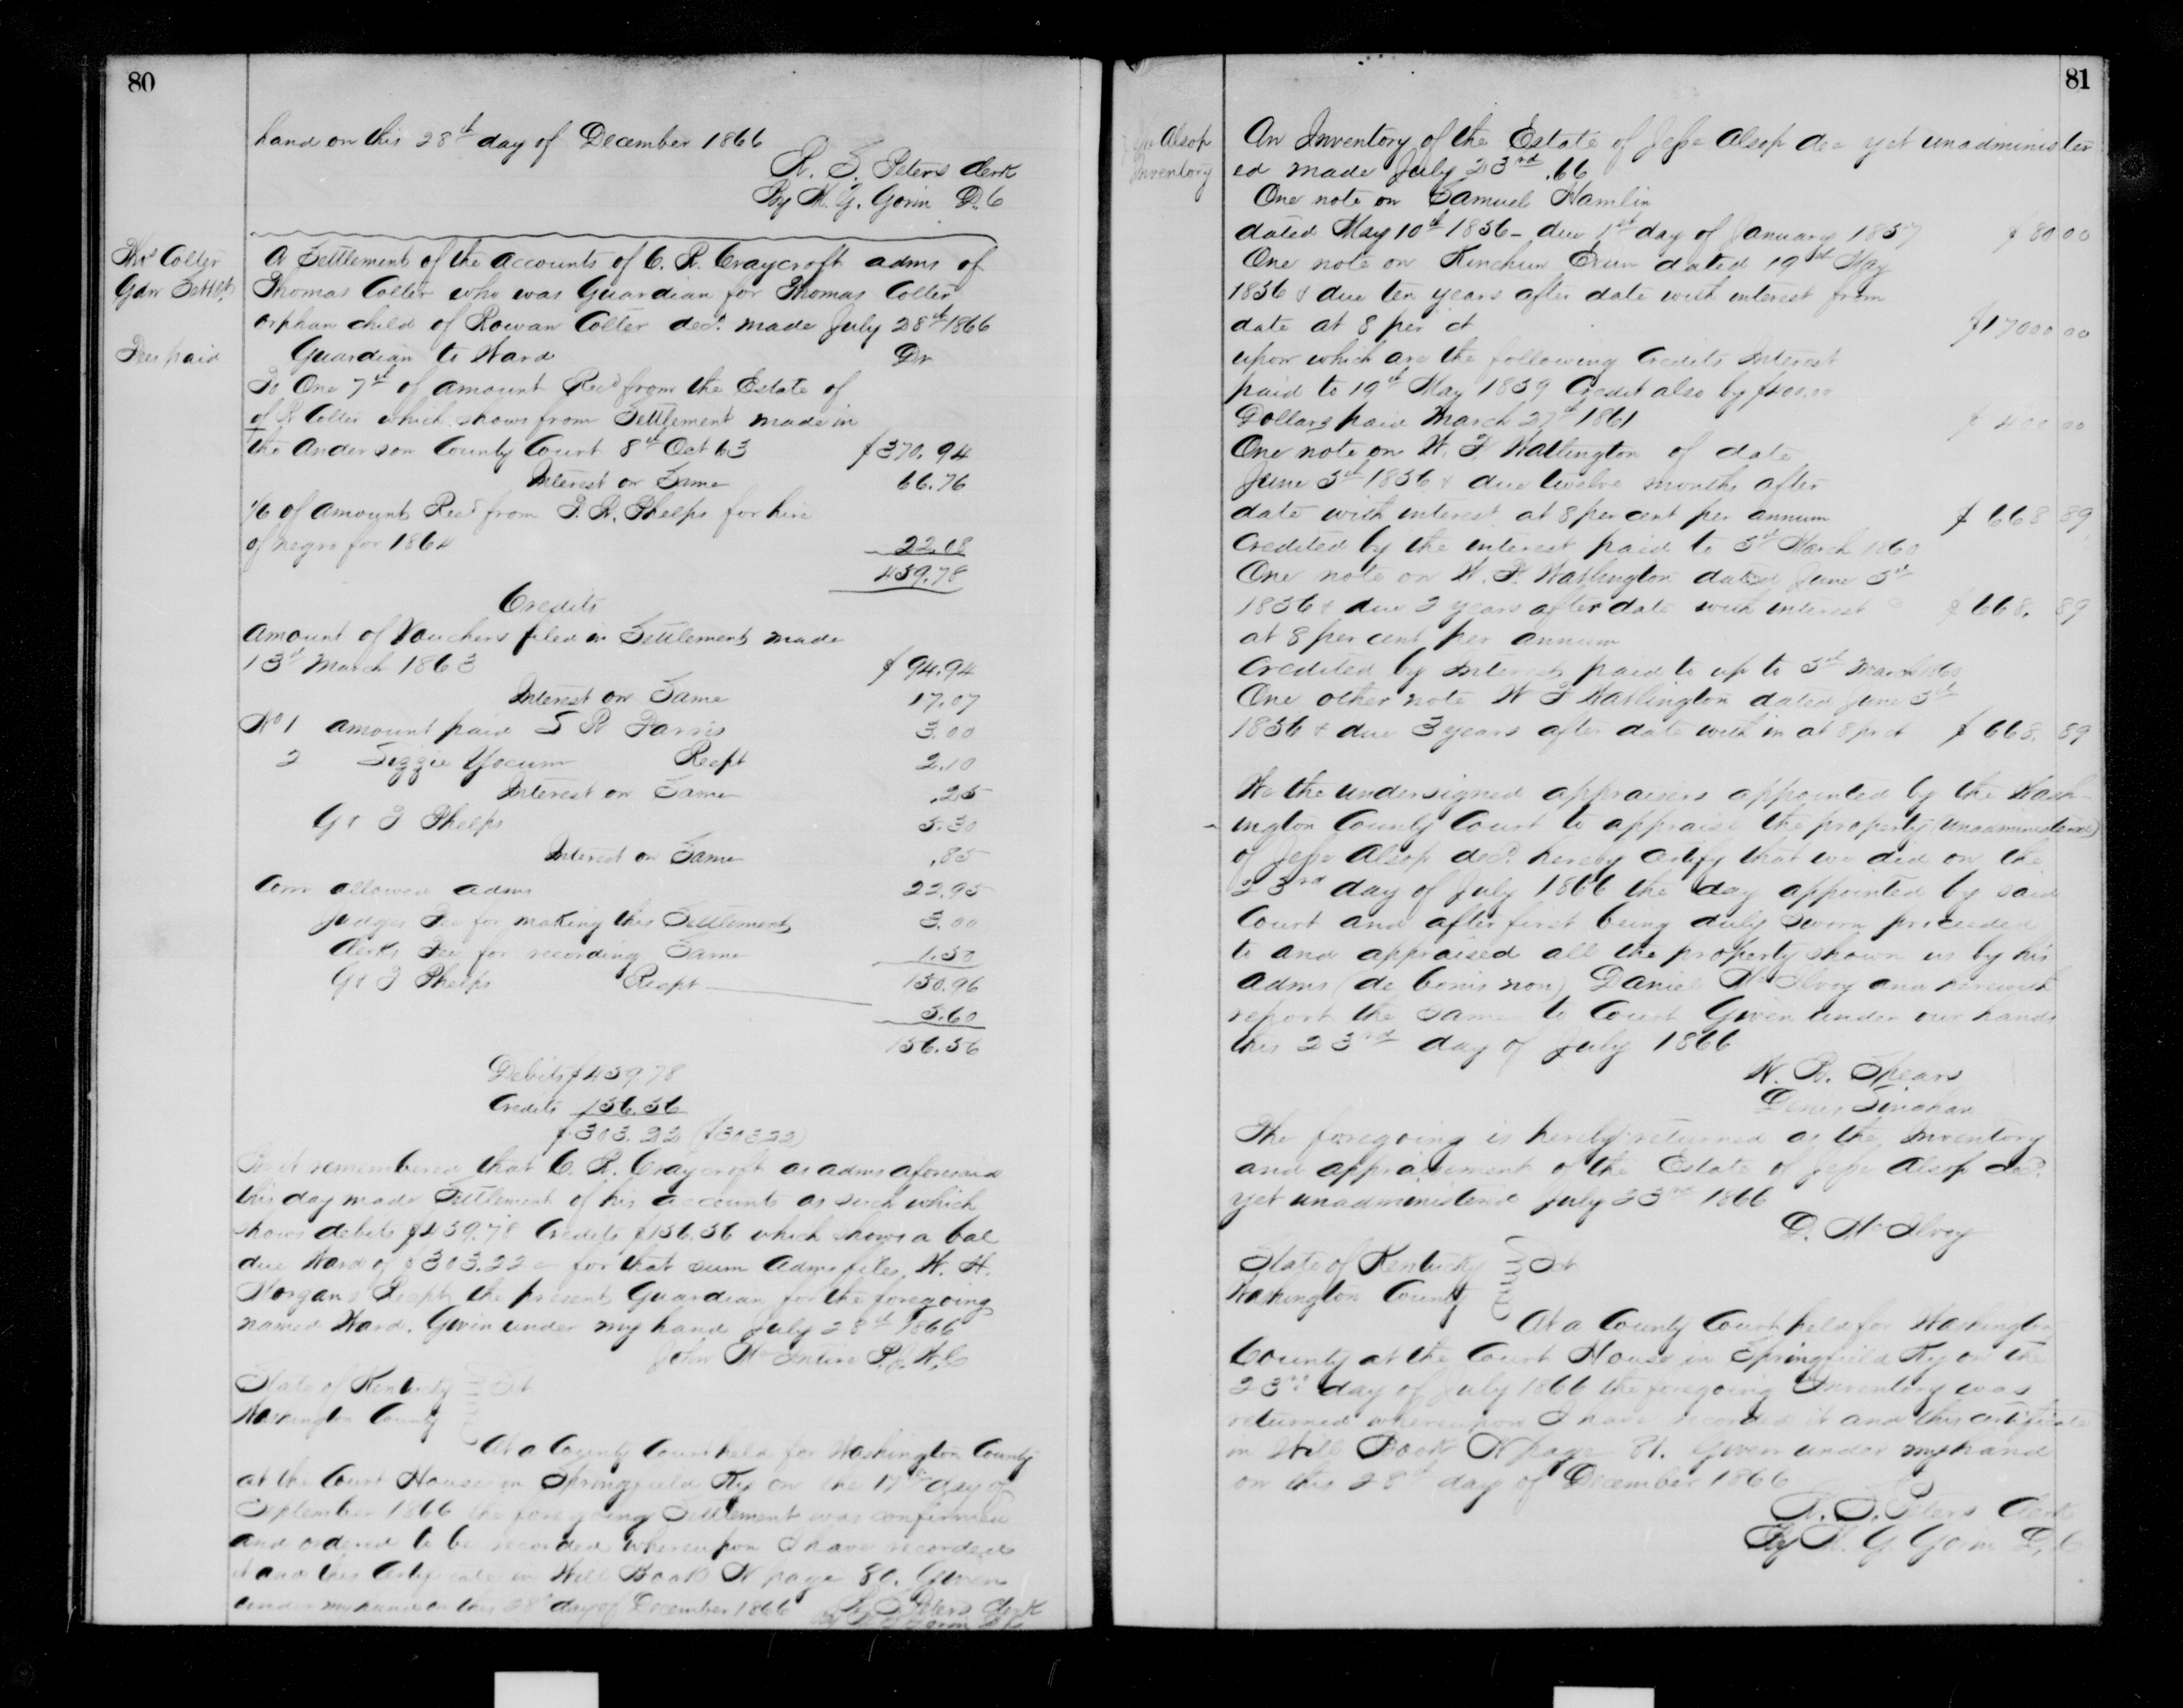 80
hand on this 28th day of December 1866
R. S. Peters Clerk
By W. G. Gorin D.C
Thos Colter
Gdn Settlt
Fees paid
A Settlement of the accounts of C. R. Craycroft adms of
Thomas Colter who was Guardian for Thomas Colter
orphan child of Rowan Colter decd. made July 28th 1866
Guardian to Ward Dr
To One 7th of amount Recd from the Estate of
of R Colter which shows from Settlement made in
the Anderson County Court 8th Oct 63 $370.94
Interest on Same 66.76
1/6 of amount Recd from J. R. Phelps for hire
of negro for 1864 22.08
459.78
Credits
Amount of Vouchers filed in Settlement made
13th March 1863 $94.94
Interest on Same 17.07
No 1 amount paid S R Farris 3.00
2 Lizzie Yocum Recpt 2.10
Interest on Same .25
G & J Phelps 5.30
Interest on Same .85
Com allowed adms 22.95
Judges Fee for making this Settlement 3.00
Clerks Fee for recording Same 1.50
G & J Phelps Recpt 150.96
5.60
156.56
Debits $459.78
Credits 156.56
$303.22 ($303.22)
Be it remembered that C. R. Craycroft as adms aforesaid
this day made Settlement of his accounts as such which
shows debits $459.78 Credits $156.56 which shows a bal
due Ward of $303.22 for that sum Adms files W. H.
Morgans Recpt the present Guardian for the foregoing
named Ward. Given under my hand July 28th 1866
John McIntire P.J.W.C
State of Kentucky Sct
Washington County
At a County Court held for Washington County
at the Court House in Springfield Ky on the 17th day of
September 1866 the foregoing Settlement was confirmed
and ordered to be recorded whereupon I have recorded
it and this Certificate in Will Book N page 80. Given
under my hand on this 28th day of December 1866 R. S. Peters Clerk
By W G Gorin D C
81
Alsop
Inventory
An Inventory of the Estate of Jesse Alsop dec yet unadminister
ed made July 23rd .66
One note on Samuel Hamlin
dated May 10th 1856 - due 1st day of January 1857 $80 00
One note on Kinchen dated 19th May
1856 & due ten years after date with interest from
date at 8 per ct $17000 00
upon which are the following Credits Interest
paid to 19th May 1859 Credit also by $400.00
Dollars paid March 27th 1861 $400 00
One note on W. F. Watlington of date
June 5th 1856 & due twelve months after
date with interest at 8 per cent per annum $668 89
Credited by the interest paid to 5th March 1860
One note on W. F. Watlington dated June 5th
1856 & due 2 years after date with interest $668. 89
at 8 per cent per annum
Credited by Interest paid to up to 5th March 1860
One other note W F Watlington dated June 5th
1856 & due 3 years after date with in at 8 pr ct $668. 89
We the undersigned appraisers appointed by the Wash-
ington County Court to appraise the property (unadministered)
of Jesse Alsop decd. hereby certify that we did on the
23rd day of July 1866 the day appointed by said
Court and after first being duly sworn proceeded
to and appraised all the property shown us by his
Adms (de bonis non) Daniel McIlvoy and herewith
report the same to Court Given under our hands
this 23rd day of July 1866
W. B. Spears
Denis
The foregoing is hereby returned as the Inventory
and appraisment of the Estate of Jesse Alsop decd.
yet unadministered July 23rd 1866
D. McIlvoy
State of Kentucky Sct
Washington County
At a County Court held for Washington
County at the Court House in Springfield Ky on the
23rd day of July 1866 the foregoing Inventory was
returned whereupon I have recorded it and this certificate
in Will Book N page 81. Given under my hand
on this 28th day of December 1866
R. S. Peters Clerk
By W. G Gorin D.C